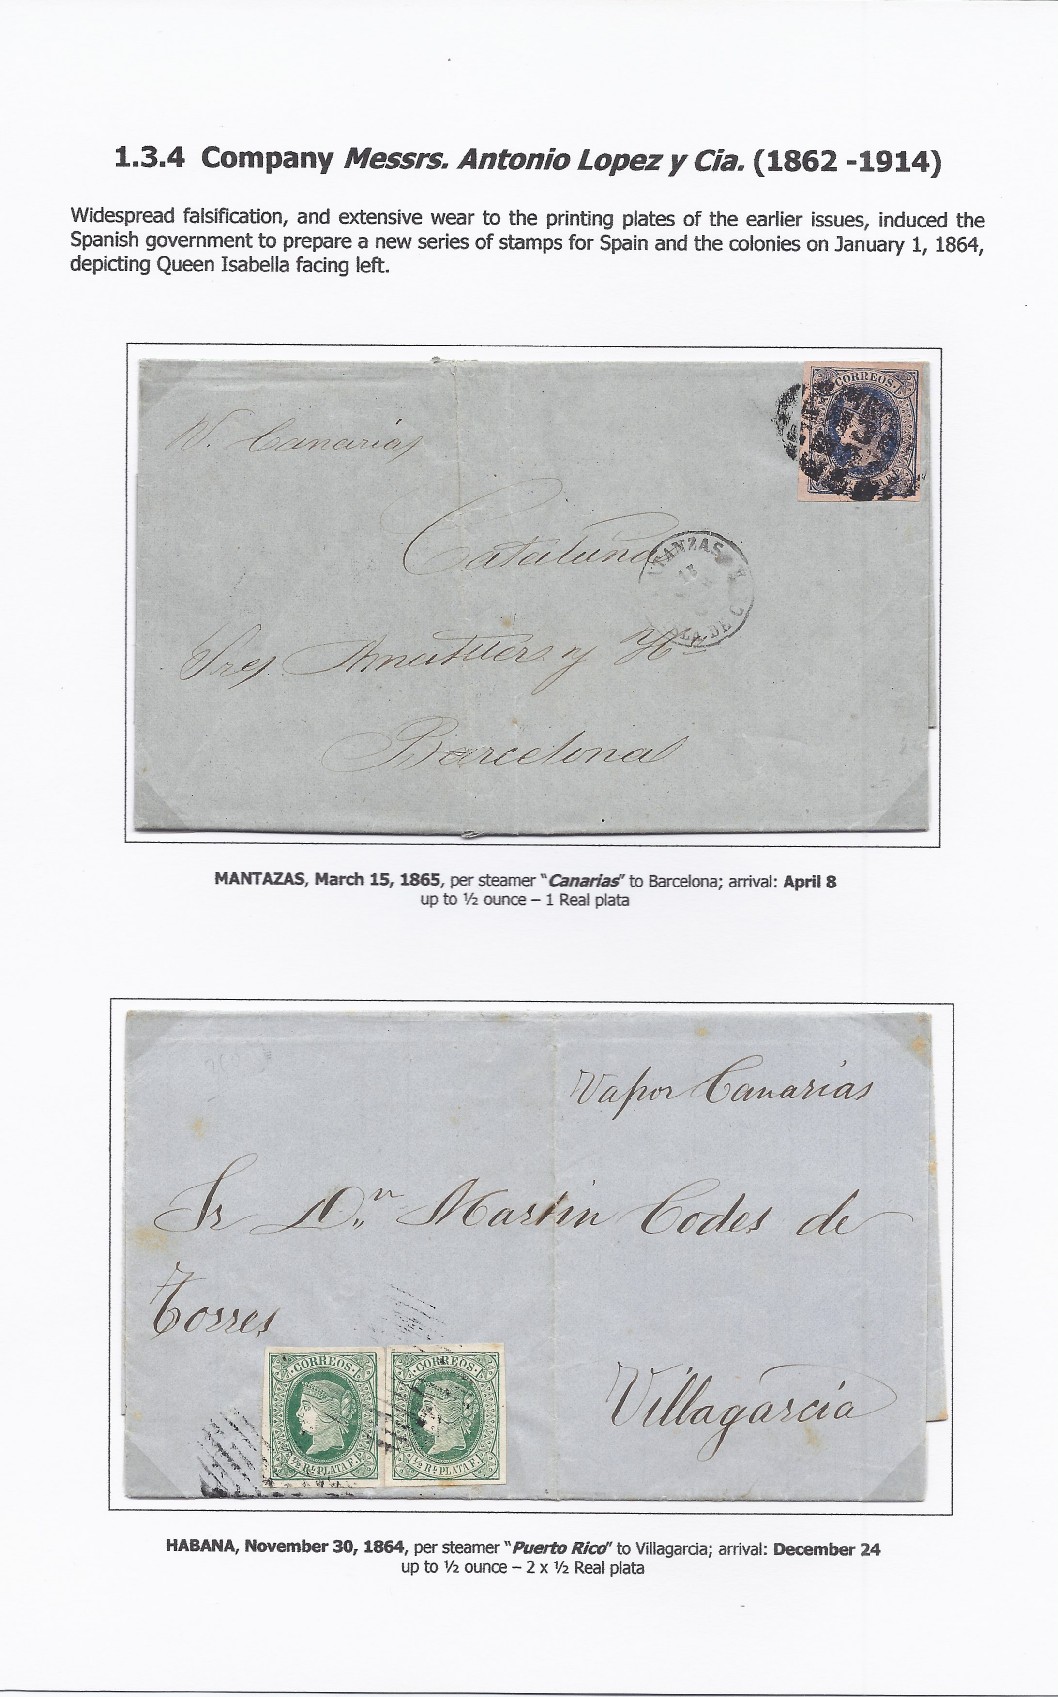 1.3.4 Company Messrs. Antonio Lopez y Cia. (1862 -1914)
Widespread falsification, and extensive wear to the printing plates of the earlier issues, induced the
Spanish government to prepare a new series of stamps for Spain and the colonies on January 1, 1864,
depicting Queen Isabella facing left.
CORREOS
V. Canarias
Cataluña
TANZAS
15
LA DE C
Sres Amatllers y Hº
Barcelona
MANTAZAS, March 15, 1865, per steamer "Canarias" to Barcelona; arrival: April 8
up to ½ ounce – 1 Real plata
Vapor Canarias
Sr Dn Martin Codes de
Torres
CORREOS
½ Rl PLATA F.
CORREOS
½ Rl PLATA F.
Villagarcia
HABANA, November 30, 1864, per steamer "Puerto Rico" to Villagarcia; arrival: December 24
up to ½ ounce – 2 x ½ Real plata